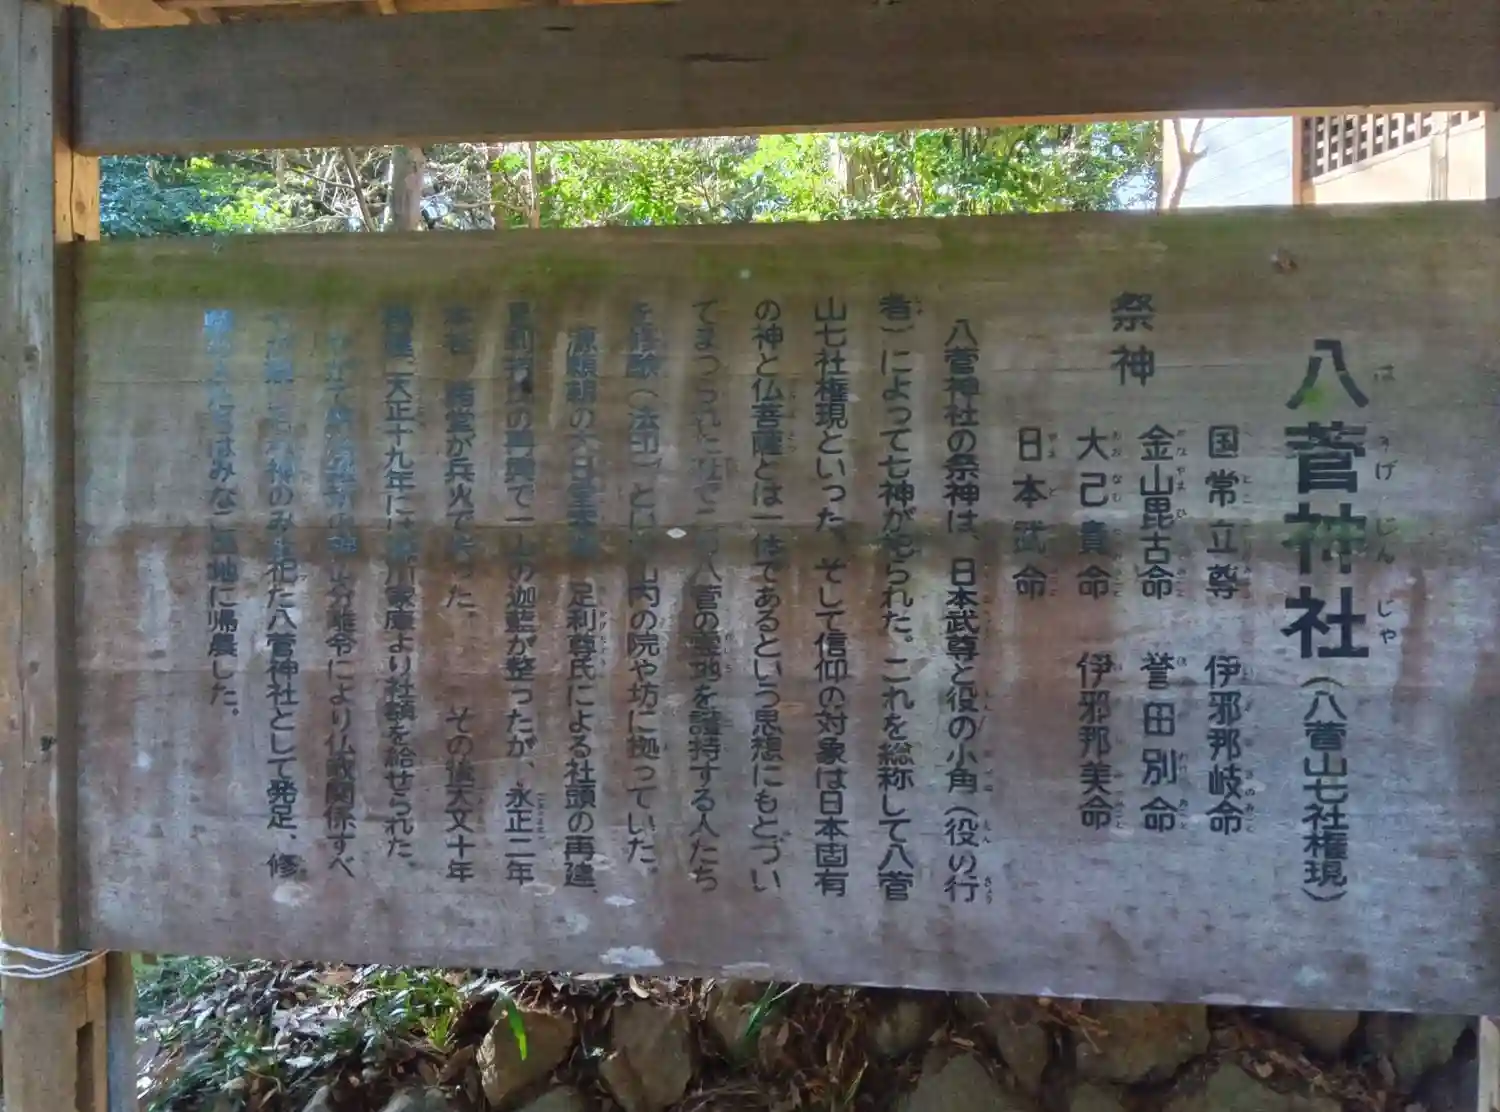 八菅神社（八菅山七社権現）
祭神
国常立尊 伊邪那岐命
金山毘古命 誉田別命
大己貴命 伊邪那美命
日本武命
八菅神社の祭神は、日本武尊と役の小角（役の行
者）によって七神が祀られた。これを総称して八菅
山七社権現といった。そして信仰の対象は日本固有
の神と仏菩薩とは一体であるという思想にもとづい
てまつられた社でこの八菅の霊地を護持する人たち
を修験（法印）といい山内の院や坊に拠っていた。
源頼朝の大日堂 足利尊氏による社頭の再建、
足利持氏の再興で一山の迦藍が整ったが、永正二年
諸堂が兵火で その後天文十年
再建、天正十九年には徳川家康より社領を給せられた。
分離令により仏教関係すべ
神のみを祀た八菅神社として発足、修
はみなこの地に帰農した。